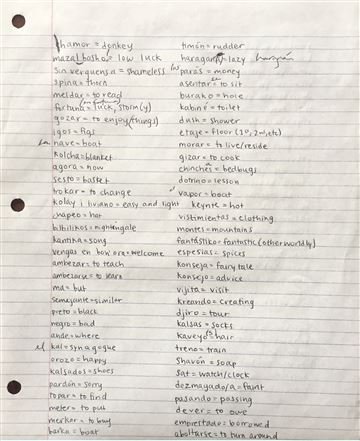 hamor = donkey
mazal basho = low luck
sin verguensa = shameless
spina = thorn
meldar = to read
fortuna = luck, storm(y)
gozar = to enjoy (things)
igos = figs
la nave = boat
kolcha = blanket
agora = now
sesto = basket
trokar = to change
kolay i liviano = easy and light
chapeo = hat
bilbilikos = nightingale
kantika = song
vengas en bon'ora = welcome
ambezar = to teach
ambezarse = to learn
ma = but
semejante = similar
preto = black
negro = bad
ande = where
el kal = synagogue
orozo = happy
kalsados = shoes
pardón = sorry
topar = to find
meter = to put
merkar = to buy
barka = boat
timón = rudder
haragan = lazy haragán
las parás = money
asentar se = to sit
burako = hole
kabiné = toilet
dush = shower
etaje = floor (1º, 2nd, etc)
morar = to live/reside
gizar = to cook
chinches = bedbugs
dotrino = lesson
vapor = boat
keynte = hot
vistimientas = clothing
montes = mountains
fantástiko = fantastic (otherworldly)
espesias = spices
konseja = fairy tale
konsejo = advice
vijita = visit
kreando = creating
djiro = tour
kalsas = socks
kaveyo = hair
treno = train
shavón = soap
sat = watch/clock
dezmayado/a = faint
pasando = passing
dever = to owe
emprestado = borrowed
aboltarse = to turn around